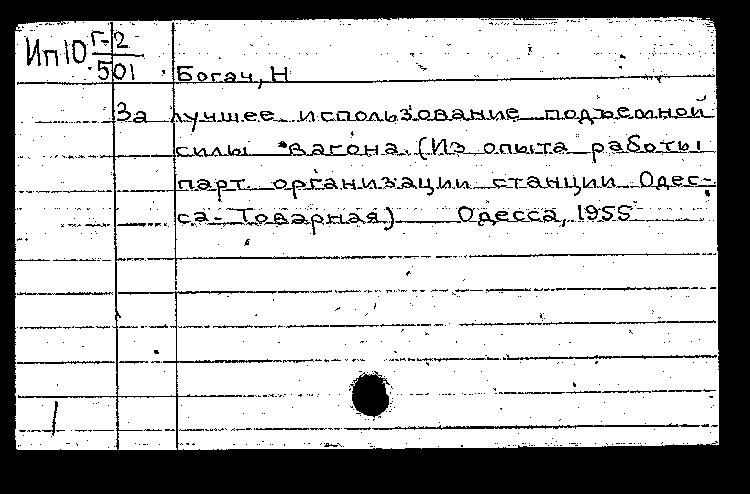 Ип10 Г-2
501 Богач, Н
За лучшее использование подъемной
силы вагона. (Из опыта работы
парт. организации станции Одес-
са-Товарная) Одесса, 1955